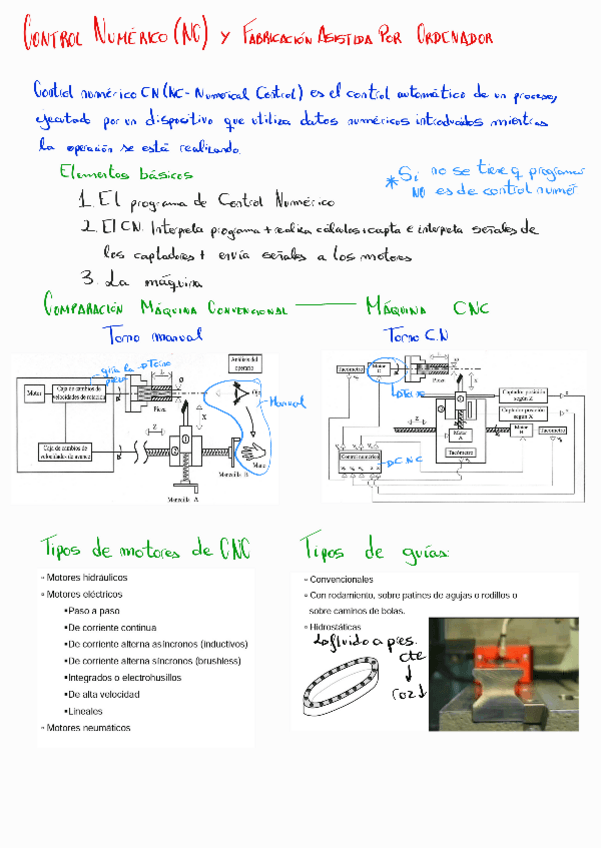 CONTROL NUMÉRICO (NC) Y FABRICACIÓN ASISTIDA POR ORDENADOR
Control numérico CN (NC - Numerical Control) es el control automático de un proceso,
ejecutado por un dispositivo que utiliza datos numéricos introducidos mientras
la operación se está realizando.
Elementos básicos
* Si no se tiene q programar
NO es de control numér
1. El programa de Control Numérico
2. El CN. Interpreta programa + realiza cálculos + capta e interpreta señales de
los captadores + envía señales a los motores
3. La máquina
COMPARACIÓN MÁQUINA CONVENCIONAL — MÁQUINA CNC
Torno manual
Torno C.N
guía la
pieza
Torno
Motor
Caja de cambios de
velocidades de rotación
Pieza
Análisis del
operario
Ojo
Manual
Mano
X
Z
1
2
Caja de cambios de
velocidades de avance
Manivela B
Manivela A
Tacómetro
Motor
Pieza
Captador posición
según Z
Captador posición
según X
Motor
A
Motor
B
Tacómetro
Tacómetro
Control numérico
CNC
Tipos de motores de CNC
▫ Motores hidráulicos
▫ Motores eléctricos
▪Paso a paso
▪De corriente continua
▪De corriente alterna asíncronos (inductivos)
▪De corriente alterna síncronos (brushless)
▪Integrados o electrohusillos
▪De alta velocidad
▪Lineales
▫ Motores neumáticos
Tipos de guías:
▫ Convencionales
▫ Con rodamiento, sobre patines de agujas o rodillos o
sobre caminos de bolas.
▫ Hidrostáticas
↳ fluido a pres.
cte
↓
roz↓